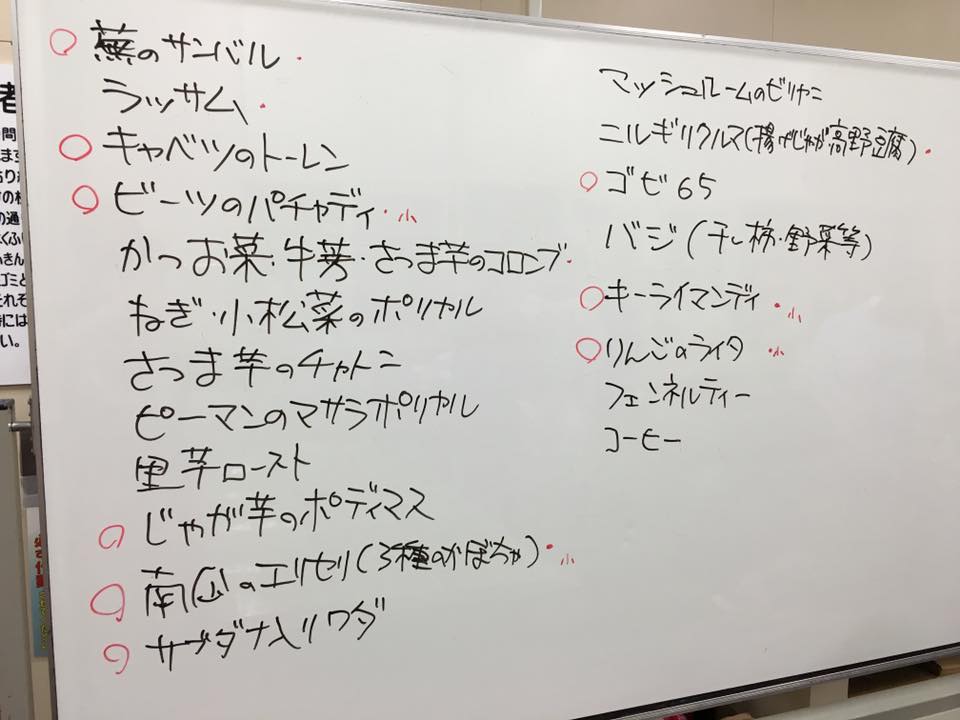 蕪のサンバル
ラッサム
キャベツのトーレン
ビーツのパチャディ 小
かつお菜・牛蒡・さつま芋のコロンブ
ねぎ・小松菜のポリヤル
さつま芋のチャトニ
ピーマンのマサラポリヤル
里芋ロースト
じゃが芋のポディマス
南瓜のエリセリ(3種のかぼちゃ) 小
サブダナ入リワダ
マッシュルームのビリヤニ
ニルギリクルマ(揚げじゃが高野豆腐)
ゴビ65
バジ(干し柿・野菜等)
キーライマンディ 小
りんごのライタ 小
フェンネルティー
コーヒー
者
間
ます
の通
ふきん
ゴミと
それぞ
時には
い。